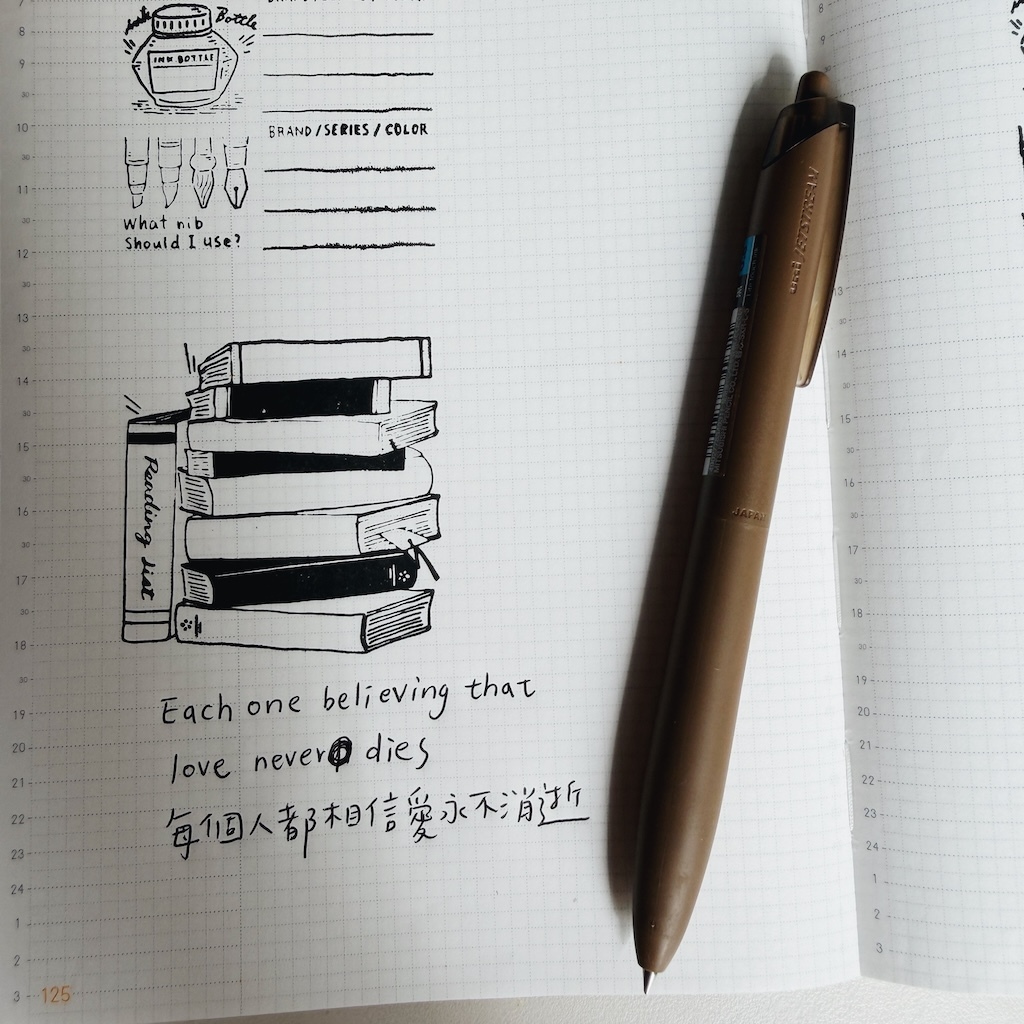 Ink Bottle
INK BOTTLE
BRAND/SERIES/COLOR
What nib
Should I use?
Reading List
Each one believing that
love never dies
每個人都相信愛永不消逝
uni JETSTREAM
JAPAN
8
9
10
11
12
13
14
15
16
17
18
19
20
21
22
23
24
1
2
3
125
8
9
13
14
15
16
17
18
19
20
21
22
23
24
1
2
3